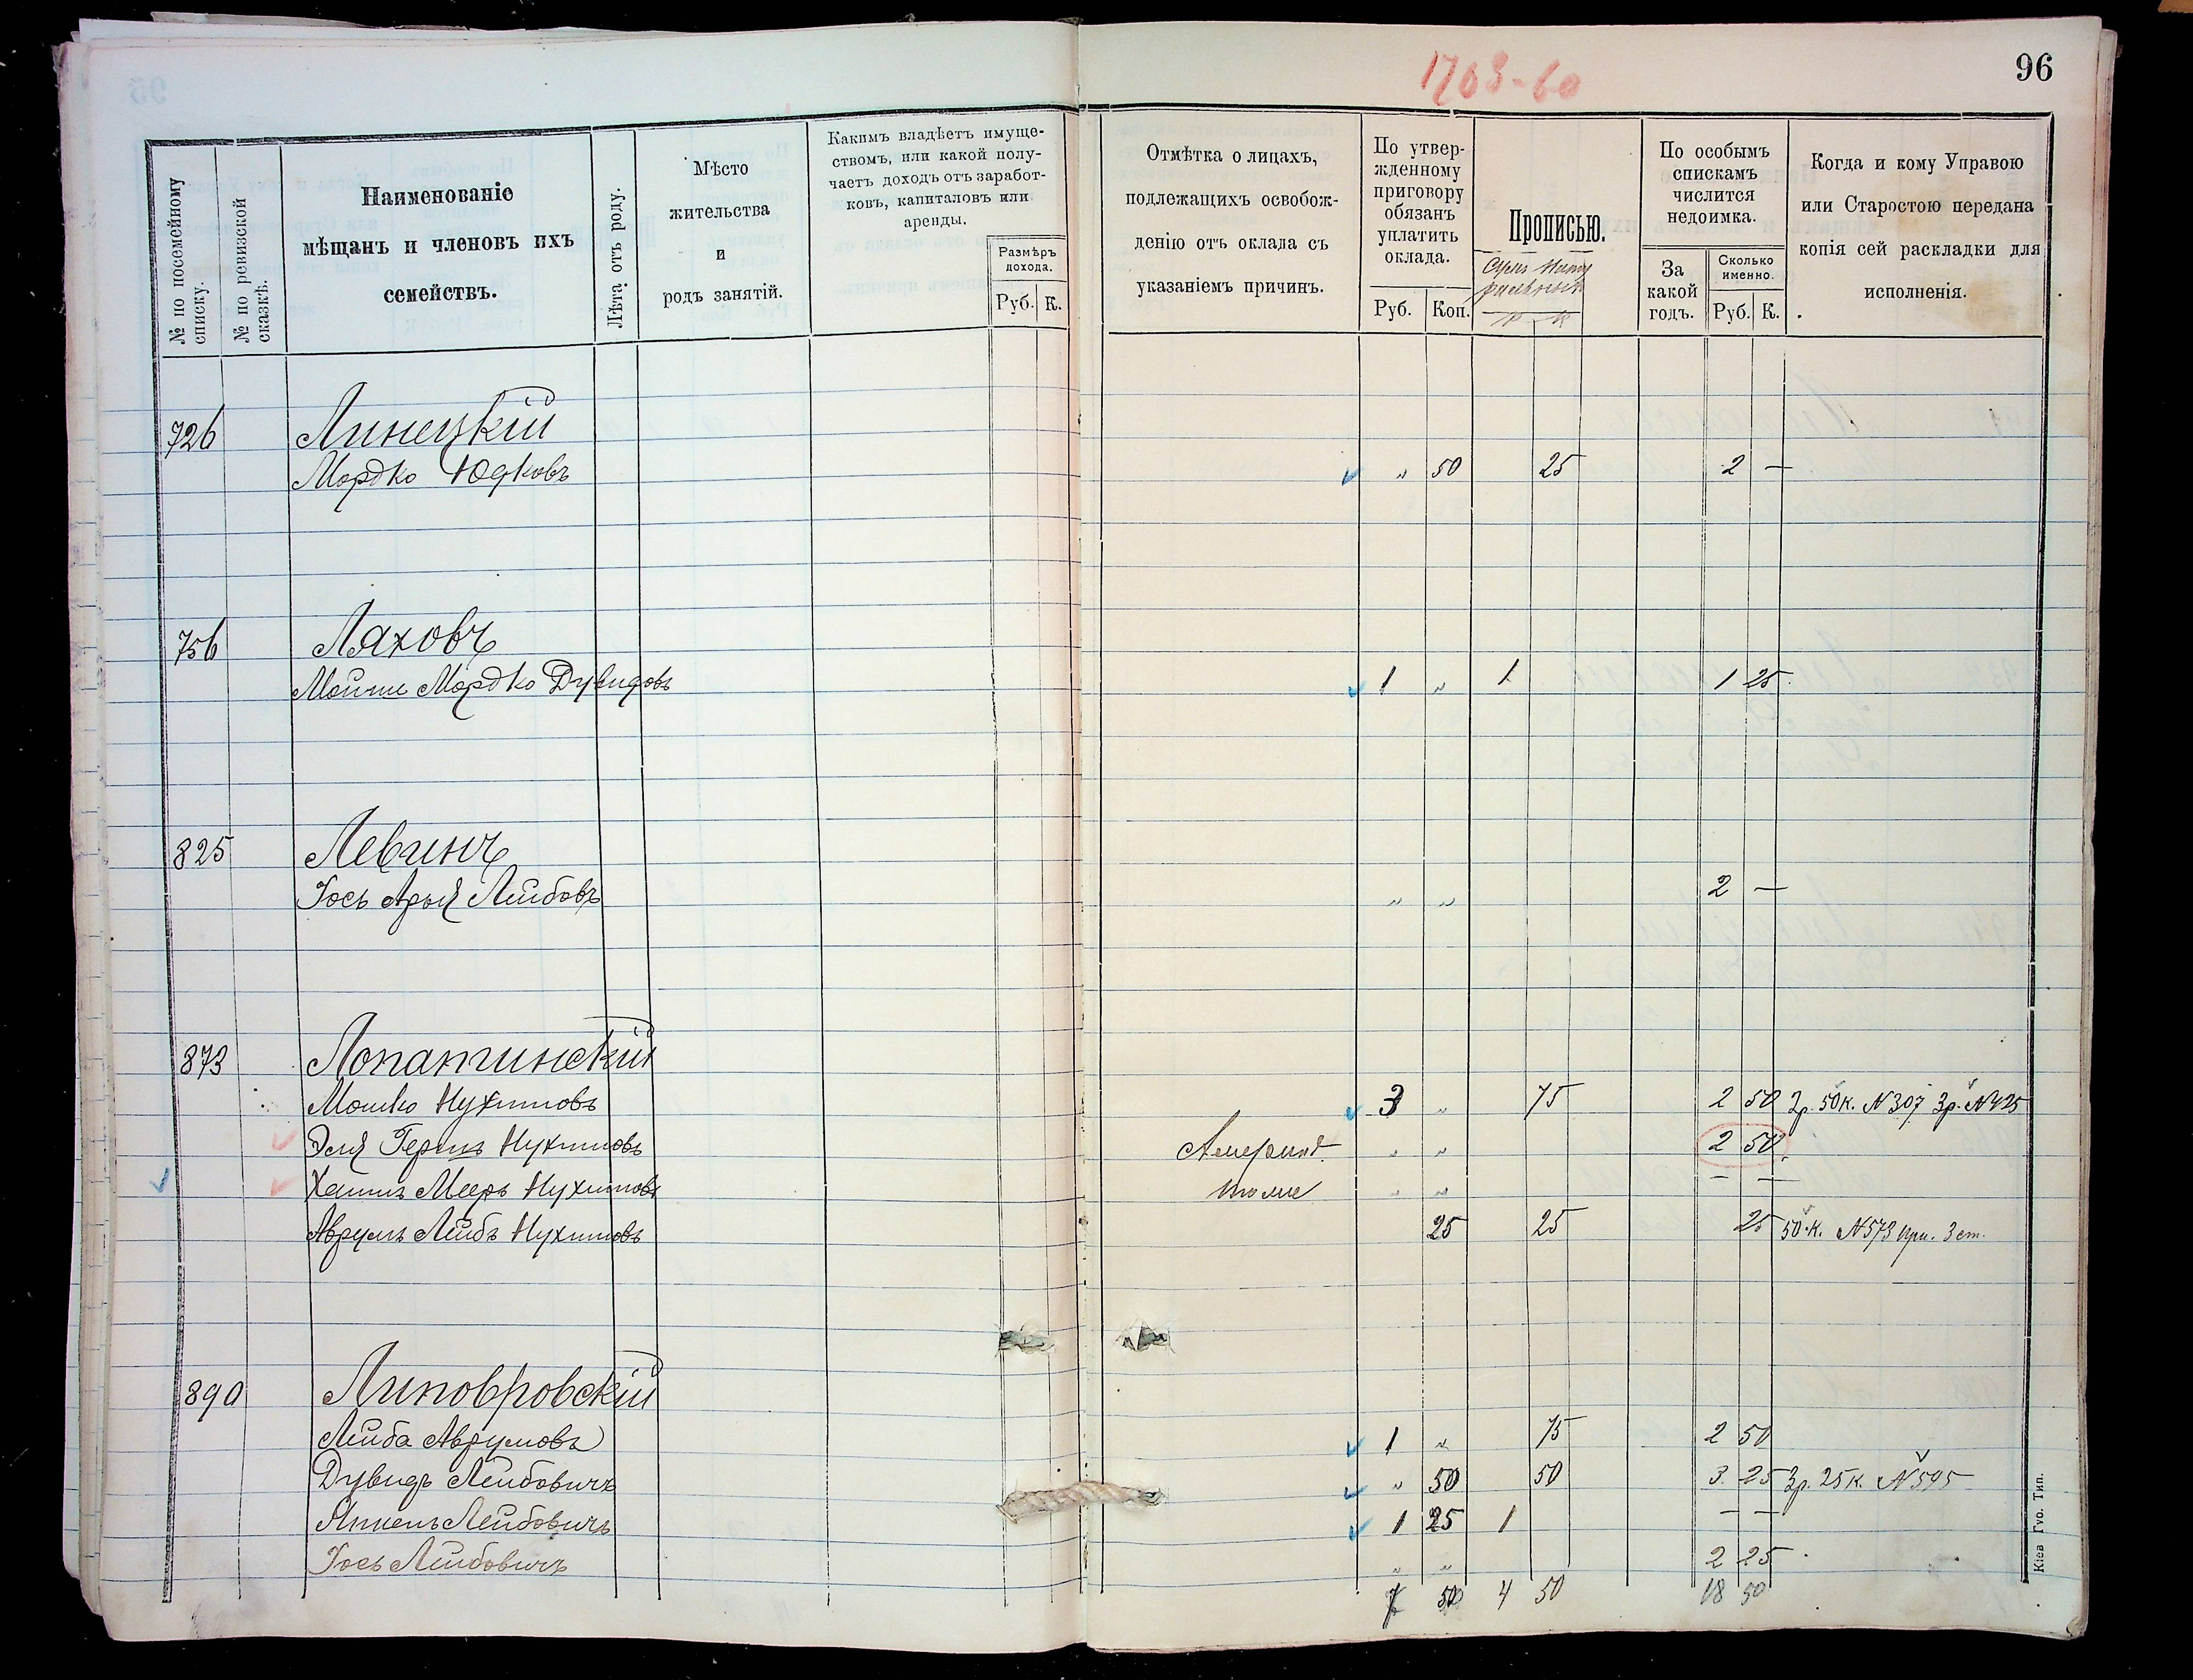 1763-60
96
№ по посемейному списку.
№ по ревизской сказкѣ.
Наименованіе
мѣщанъ и членовъ ихъ
семействъ.
Лѣта отъ роду.
Мѣсто
жительства
и
родъ занятій.
Какимъ владѣетъ имуще-
ствомъ, или какой полу-
чаетъ доходъ отъ заработ-
ковъ, капиталовъ или
аренды.
Размѣръ
дохода.
Руб. К.
Отмѣтка о лицахъ,
подлежащихъ освобож-
денію отъ оклада съ
указаніемъ причинъ.
По утвер-
жденному
приговору
обязанъ
уплатить
оклада.
Руб. Коп.
Прописью.
По особымъ
спискамъ
числится
недоимка.
За
какой
годъ.
Сколько
именно.
Руб. К.
Когда и кому Управою
или Старостою передана
копія сей раскладки для
исполненія.
726 Линецкій
Мордко Юдковъ „ 50 25 2 —
756 Ляховъ
Мойше Мордко Дувидовъ 1 „ 1 1 25
825 Левинъ
Іось Арья Лейбовъ „ „ 2 —
873 Лопатинскій
Мошко Нухимовъ 3 „ 75 2 50 2р. 50к. №307 3р. №425
Эля Гершъ Нухимовъ „ „ 2 50
Хаимъ Мееръ Нухимовъ тоже „ „ — —
Аврумъ Лейбъ Нухимовъ 25 25 25 50 к. №573 при. 3 ст.
890 Липовровскій
Лейба Аврумовъ 1 „ 75 2 50
Дувидъ Лейбовичъ „ 50 50 3 25 3р. 25к. №595
Янкель Лейбовичъ 1 25 1 — —
Іось Лейбовичъ „ „ 2 25
7 50 4 50 18 50
Кіев Гуо. Тип.